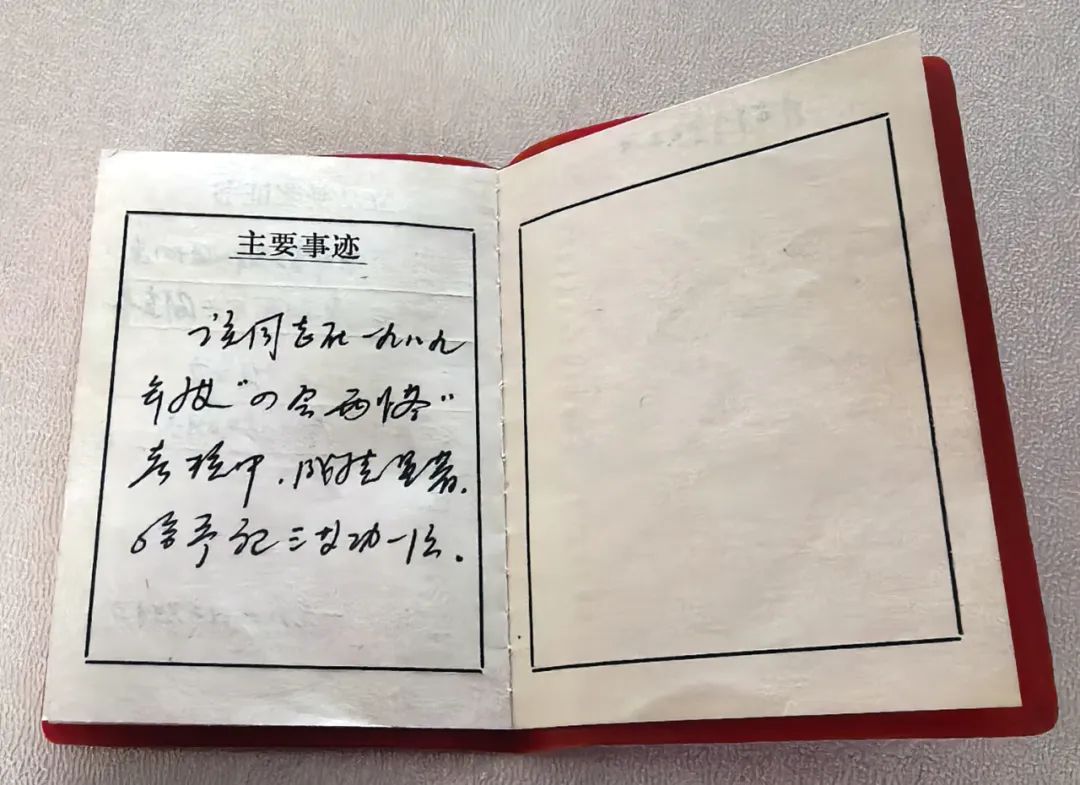 主要事迹
该同志在一九八九
年度“四会两懂”
考核中，成绩显著，
给予记三等功一次。